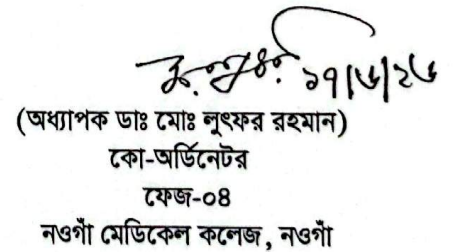 ১৭/৬/২৬
(অধ্যাপক ডাঃ মোঃ লুৎফর রহমান)
কো-অর্ডিনেটর
ফেজ-০৪
নওগাঁ মেডিকেল কলেজ, নওগাঁ